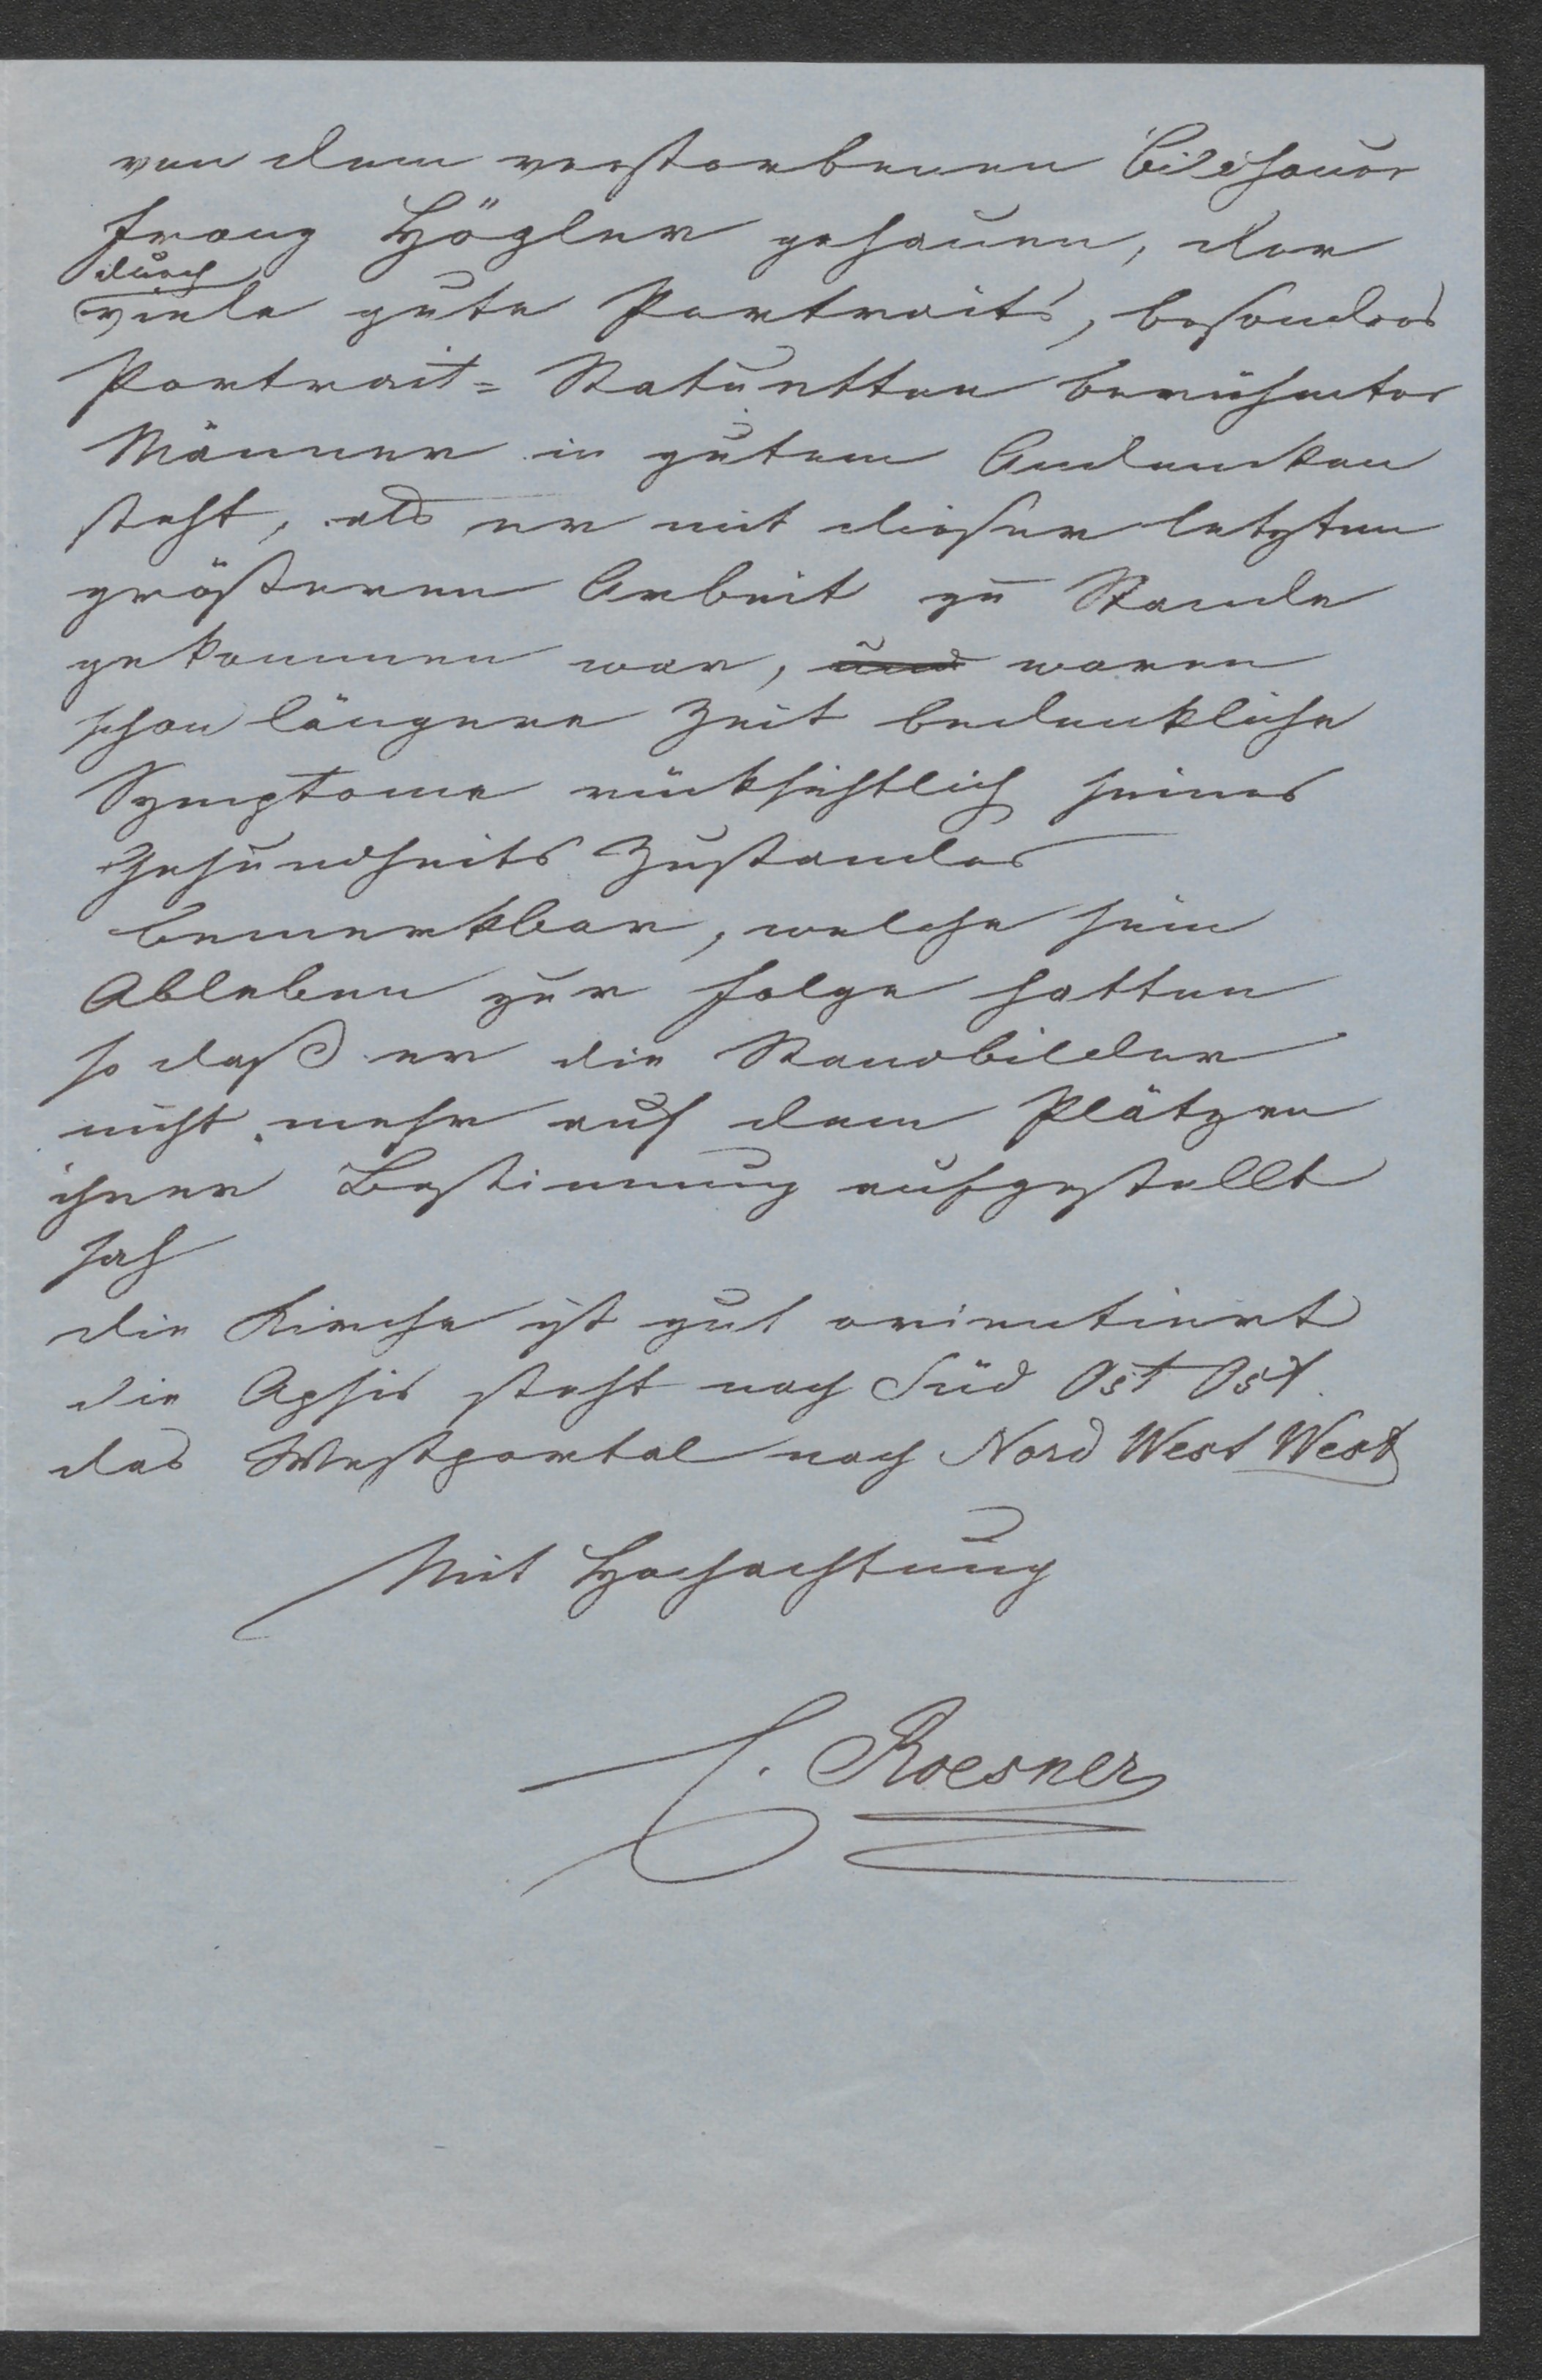 von dem verstorbenen Bildhauer
Franz Högler gehauen, der
durch
viele gute Portraits, besonders
Portrait= Statuetten berühmter
Männer in gutem Andenken
steht, als er mit dieser letzten
größeren Arbeit zu Stande
gekommen war, und waren
schon längere Zeit bedenkliche
Symptome rücksichtlich seines
Gesundheits Zustandes
bemerkbar, welche sein
Ableben zur Folge hatten
so daß er die Standbilder
nicht mehr auf dem Plätzen
ihrer Bestimmung aufgestellt
sah
die Kirche ist gut orientiert
die Apsis steht nach Süd Ost Ost.
das Westportal nach Nord West West
Mit Hochachtung
C. Roesner